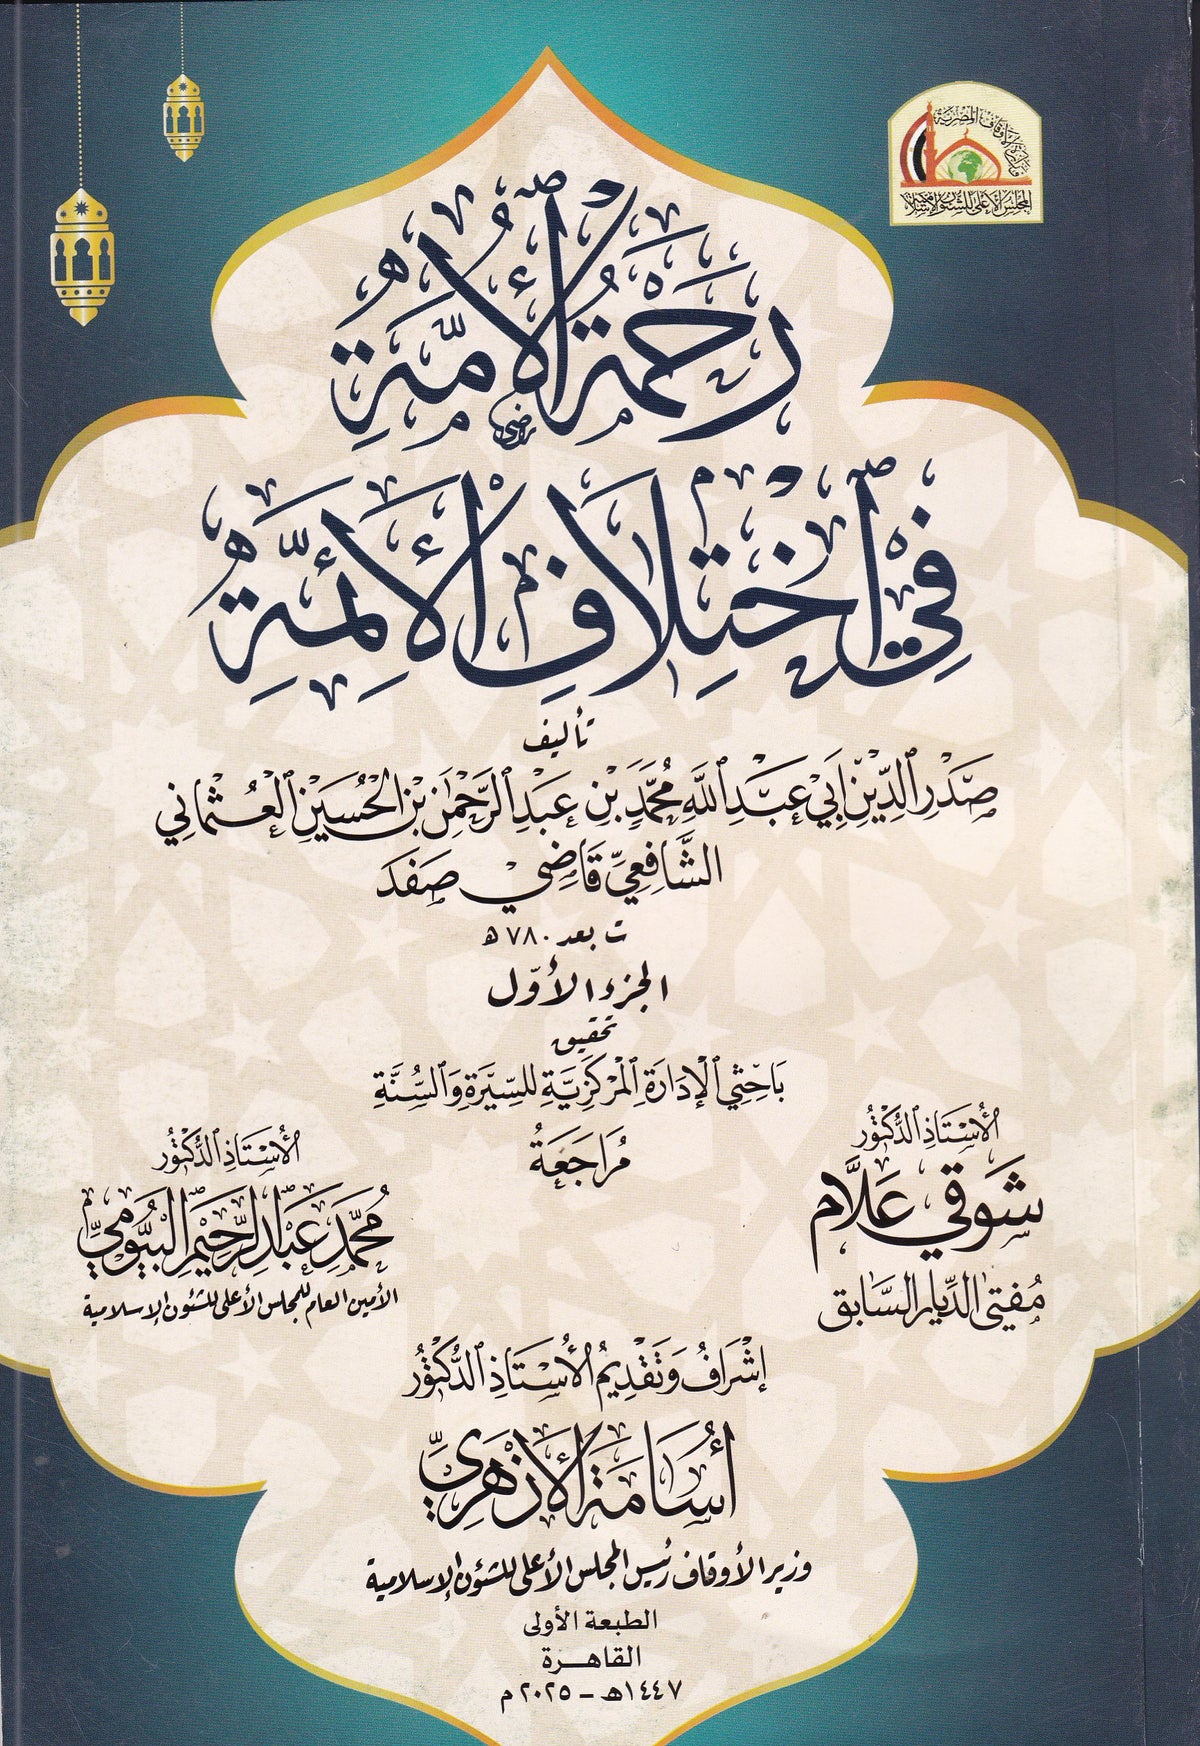 وزارة الأوقاف المصرية
المجلس الأعلى للشئون الإسلامية
رَحْمَةُ ٱلْأُمَّةِ
فِي ٱخْتِلَافِ ٱلْأَئِمَّةِ
تأليف
صَدْرِ ٱلدِّينِ أَبِي عَبْدِ ٱللَّهِ مُحَمَّدِ بْنِ عَبْدِ ٱلرَّحْمَٰنِ بْنِ ٱلْحُسَيْنِ ٱلْعُثْمَانِي
الشَّافِعِيِّ قَاضِي صَفَد
ت بعد ٧٨٠ هـ
الجزء الأوّل
تحقيق
بَاحِثِي ٱلْإِدَارَةِ ٱلْمَرْكَزِيَّةِ لِلسِّيرَةِ وَٱلسُّنَّةِ
مُرَاجَعَةُ
الْأُسْتَاذِ ٱلدُّكْتُورِ
شَوْقِي عَلَّام
مُفْتِى الدِّيَارِ السَّابِق
الْأُسْتَاذِ ٱلدُّكْتُورِ
مُحَمَّد عَبْدِ ٱلرَّحِيمِ الْبَيُّومِيِّ
الأمين العام للمجلس الأعلى للشئون الإسلامية
إِشْرَافُ وَتَقْدِيمُ الْأُسْتَاذِ ٱلدُّكْتُورِ
أُسَامَة الْأَزْهَرِيِّ
وزير الأوقاف رئيس المجلس الأعلى للشئون الإسلامية
الطبعة الأولى
القاهـــرة
١٤٤٧هـ - ٢٠٢٥ م